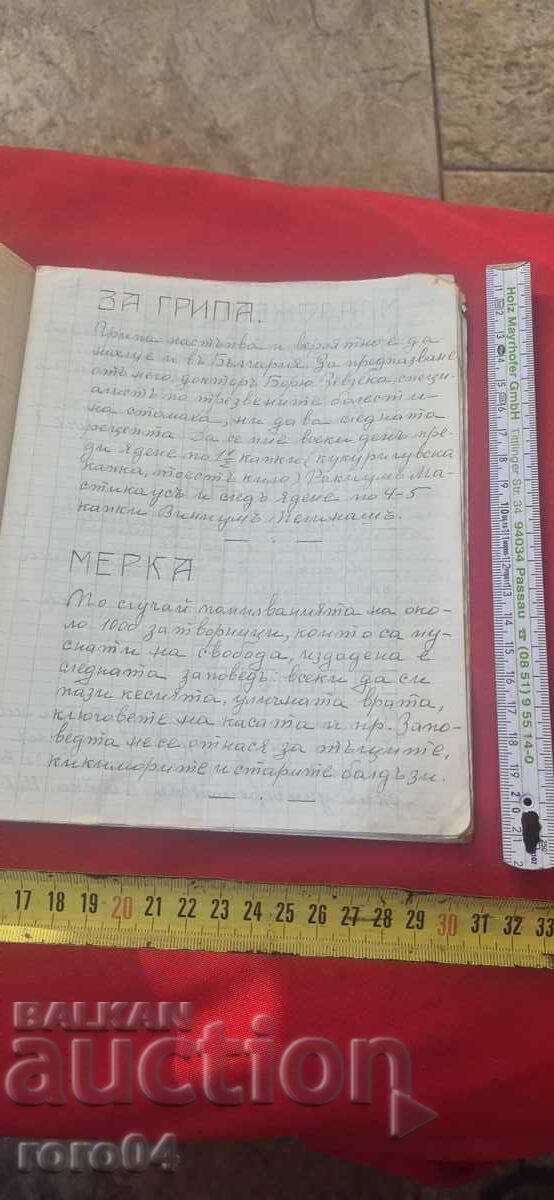 ЗА ГРИПА.
Грипа настъпва и вероятно е да
нахлуе и въ България. За предпазване
отъ него, докторъ Борю Зевзека, специ-
алистъ по трезвените болести
на стомаха, ни дава следната
рецепта. Да се пие всеки день пре-
ди ядене по 1/2 капки (кукуригувска
капка, тоестъ кило) Ракиумъ Ма-
стикаусъ и следъ ядене по 4-5
капки Винниумъ Пелинашъ.
МЕРКА
По случай помилванията на око-
ло 1000 затворници, които са пу-
снати на свобода, издадена е
следната заповедь: всеки да си
пази кесията, уличната врата,
ключовете на касата и пр. Запо-
ведта не се отнася за тъщите,
кикиморите и старите балдъзи.
Holz Mayrhofer GmbH
Tittlinger Str. 34
94034 Passau ☎ (08 51) 9 55 14-0
17 18 19 20 21 22 23 24 25 26 27 28 29 30 31 32 33
BALKAN
auction
roro04